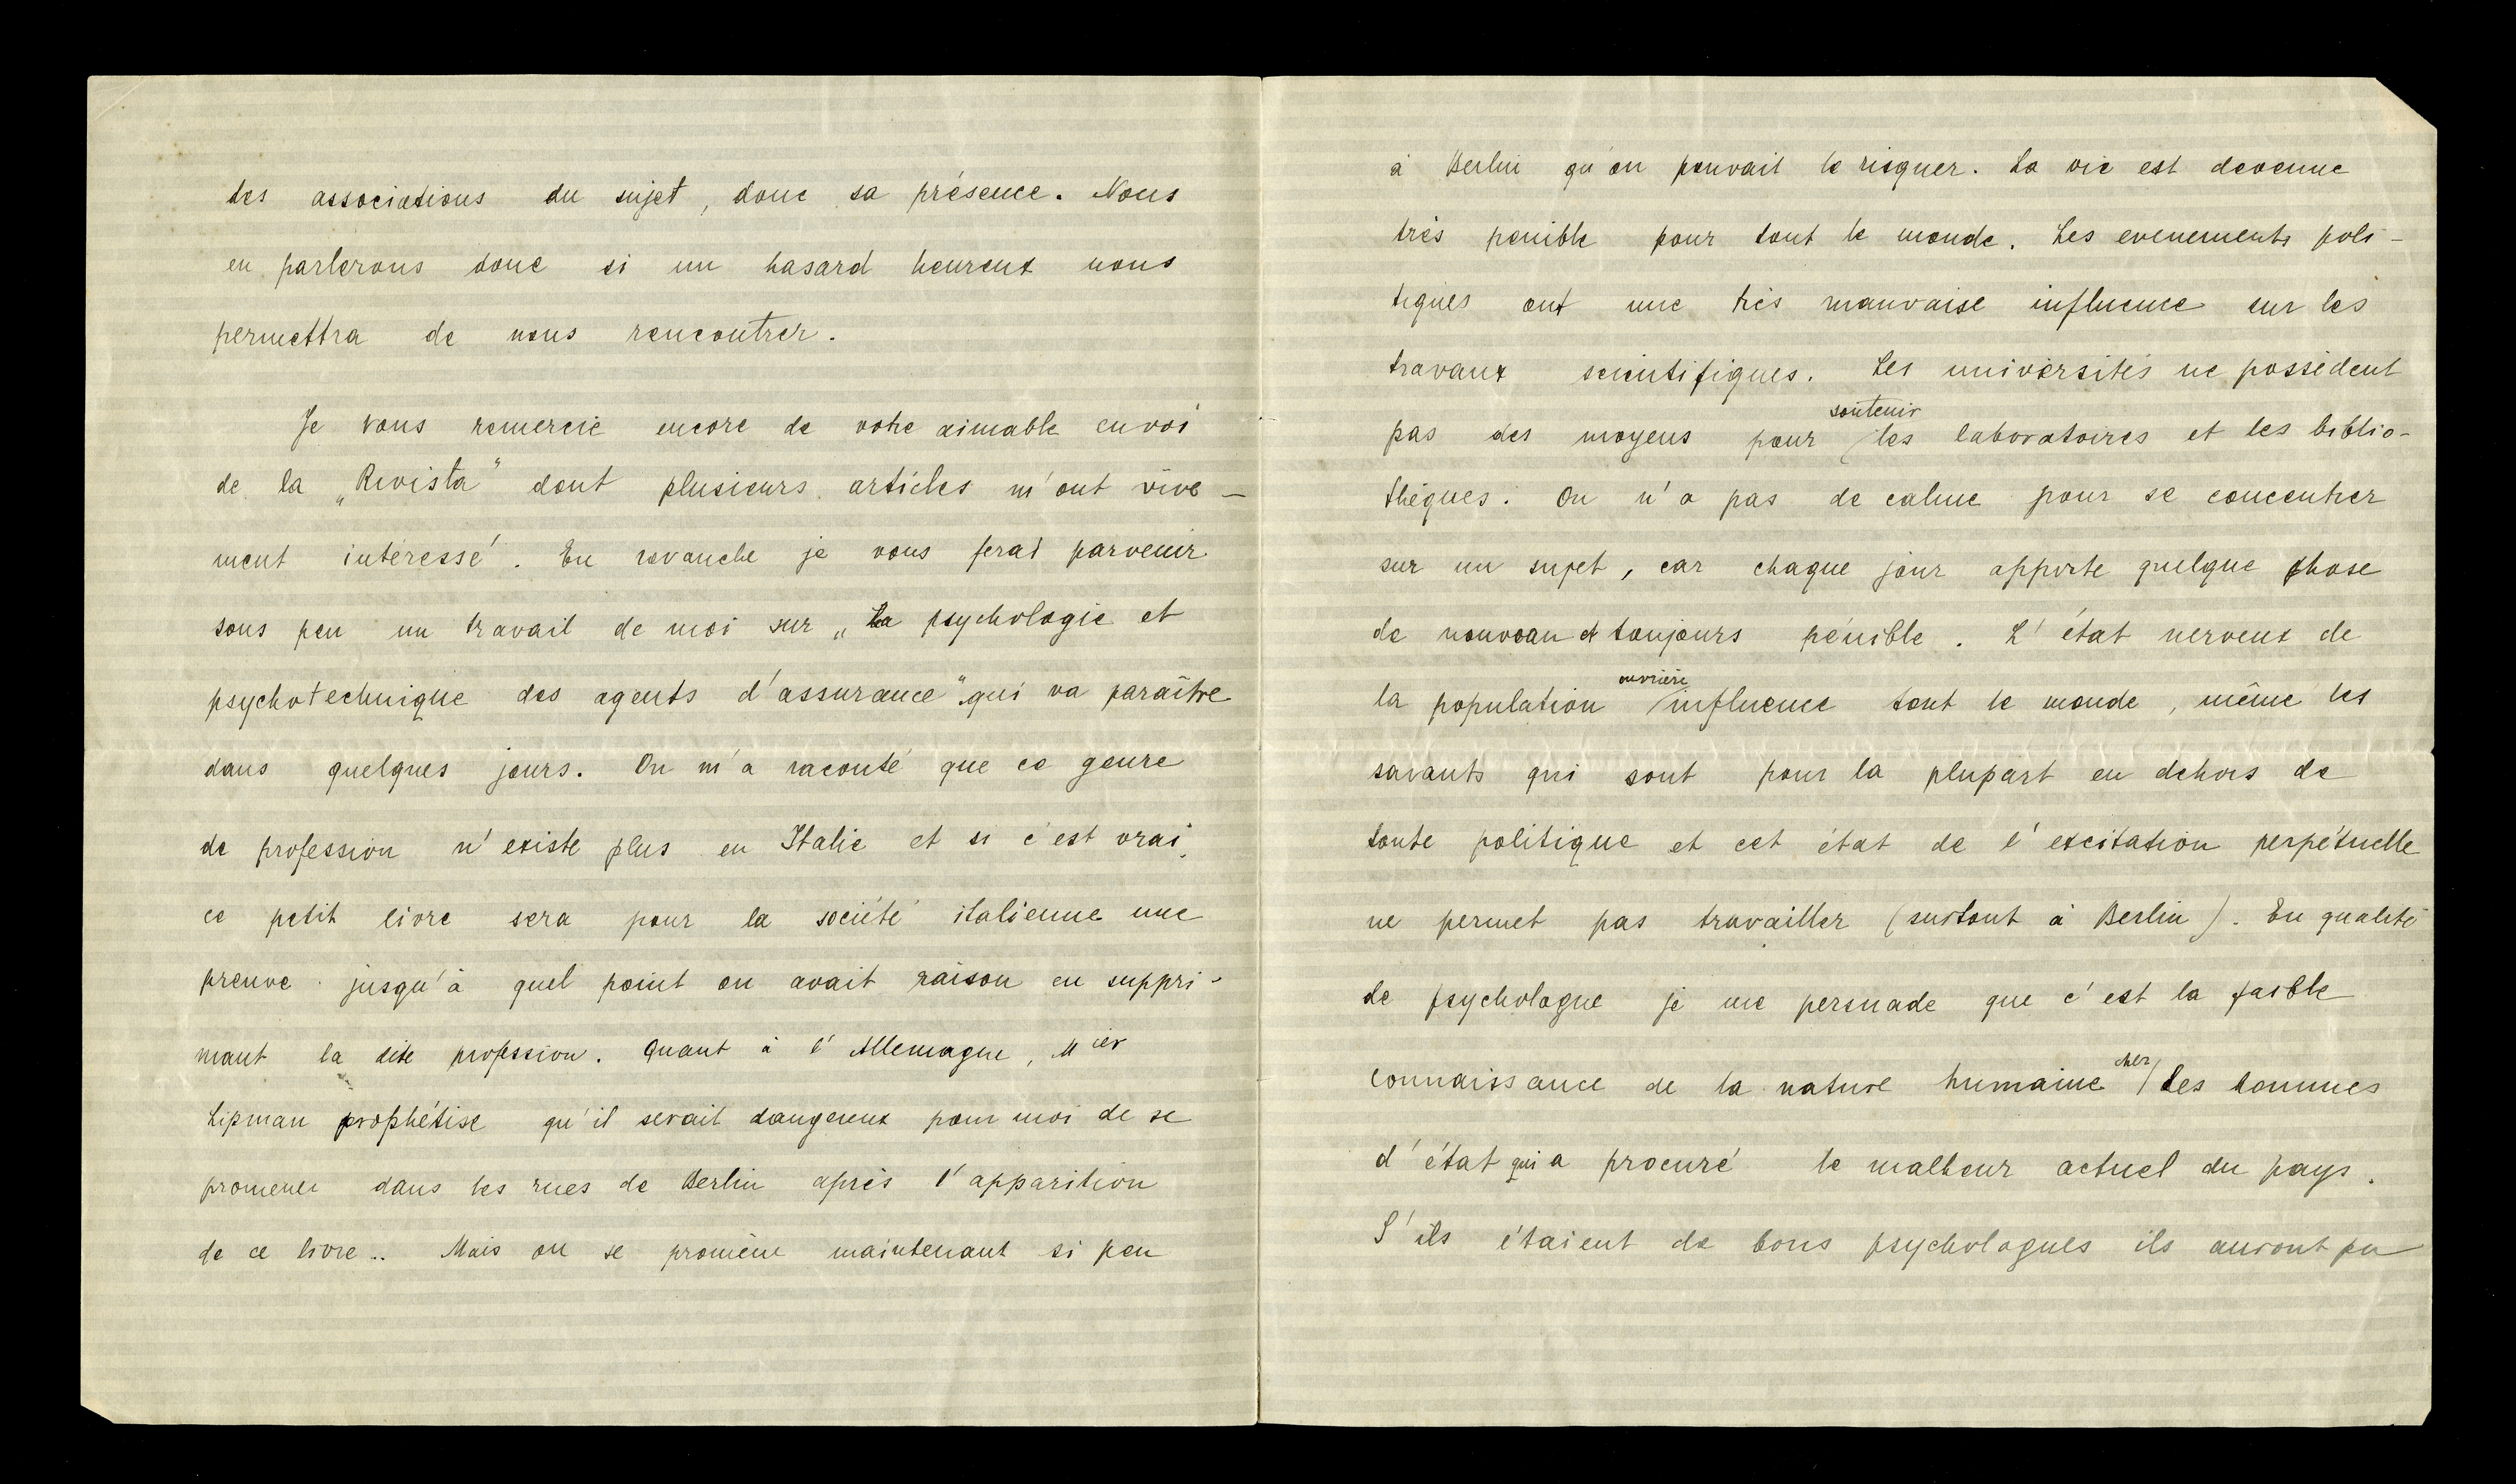 les associations du sujet, donc sa présence. Nous
en parlerons donc si un hasard heureux nous
permettra de nous rencontrer.
Je vous remercie encore de votre aimable envoi
de la „Rivista" dont plusieurs articles m'ont vive-
ment intéressé. En revanche je vous ferai parvenir
sous peu un travail de moi sur „La psychologie et
psychotechnique des agents d'assurance" qui va paraître
dans quelques jours. On m'a raconté que ce genre
de profession n'existe plus en Italie et si c'est vrai,
ce petit livre sera pour la société italienne une
preuve jusqu'à quel point on avait raison en suppri-
mant la dite profession. Quant à l'Allemagne, M ier
Lipman prophétise qu'il serait dangereux pour moi de se
promener dans les rues de Berlin après l'apparition
de ce livre.. Mais on se promène maintenant si peu
à Berlin qu'on pouvait le risquer. La vie est devenue
très penible pour tout le monde. Les evenements poli-
tiques ont une très mauvaise influence sur les
travaux scientifiques. Les universités ne possèdent
pas des moyens pour soutenir les laboratoires et les biblio-
thèques. On n'a pas de calme pour se concentrer
sur un sujet, car chaque jour apporte quelque chose
de nouveau et toujours pénible. L'état nerveux de
la population ouvrière influence tout le monde, même les
savants qui sont pour la plupart en dehors de
toute politique et cet état de l'excitation perpétuelle
ne permet pas travailler (surtout à Berlin). En qualité
de psychologue je me persuade que c'est la faible
connaissance de la nature humaine chez les hommes
d'état qui a procuré le malheur actuel du pays.
S'ils étaient de bons psychologues ils auront pu